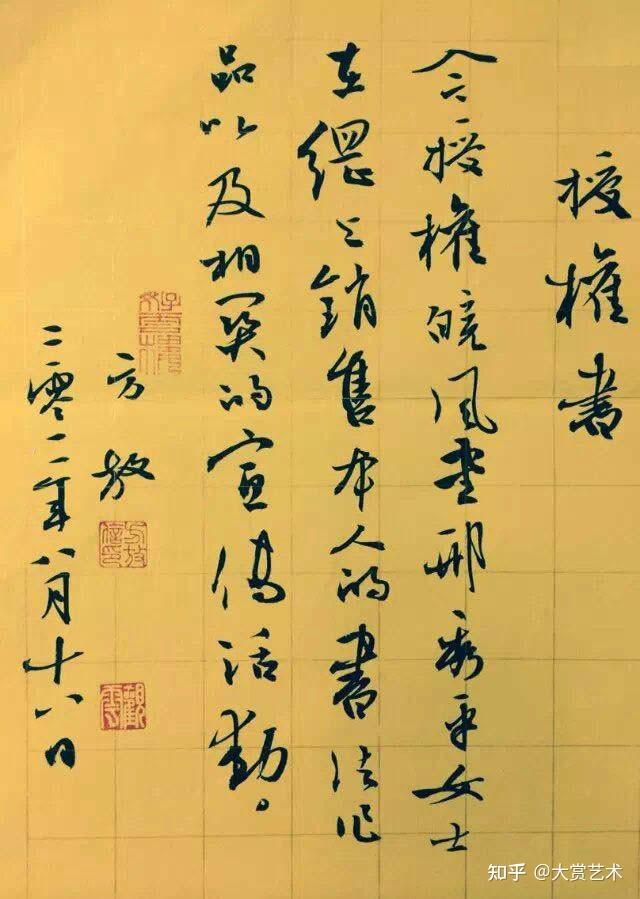 授權書
今授權皖風畫邢彩平女士
在網上銷售本人的書法作
品以及相関的宣傳活動。
方放
二零二二年八月十八日
方放
知乎 @大赏艺术